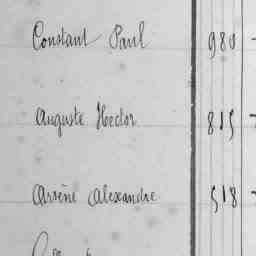 Constant Paul 980
Auguste Hector 815
Arsène Alexandre 518